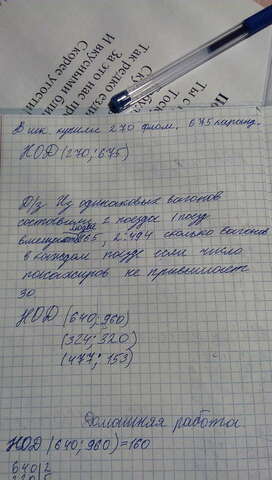 Так редко ез
За это нас пр
И вкусными бли
Скорее угости
В шк. купили 270 флом. 675 каранд.
НОД (270; 675)
Д/з Из одинаковых вагонов
составили 2 поезда 1 поезд
вмещает 465, 2-494 сколько вагонов
в каждом поезде если число
пассажиров не превышает
30.
НОД (640; 960)
(324; 320)
(477; 153)
Домашняя работа
НОД (640; 960) = 160
640 2